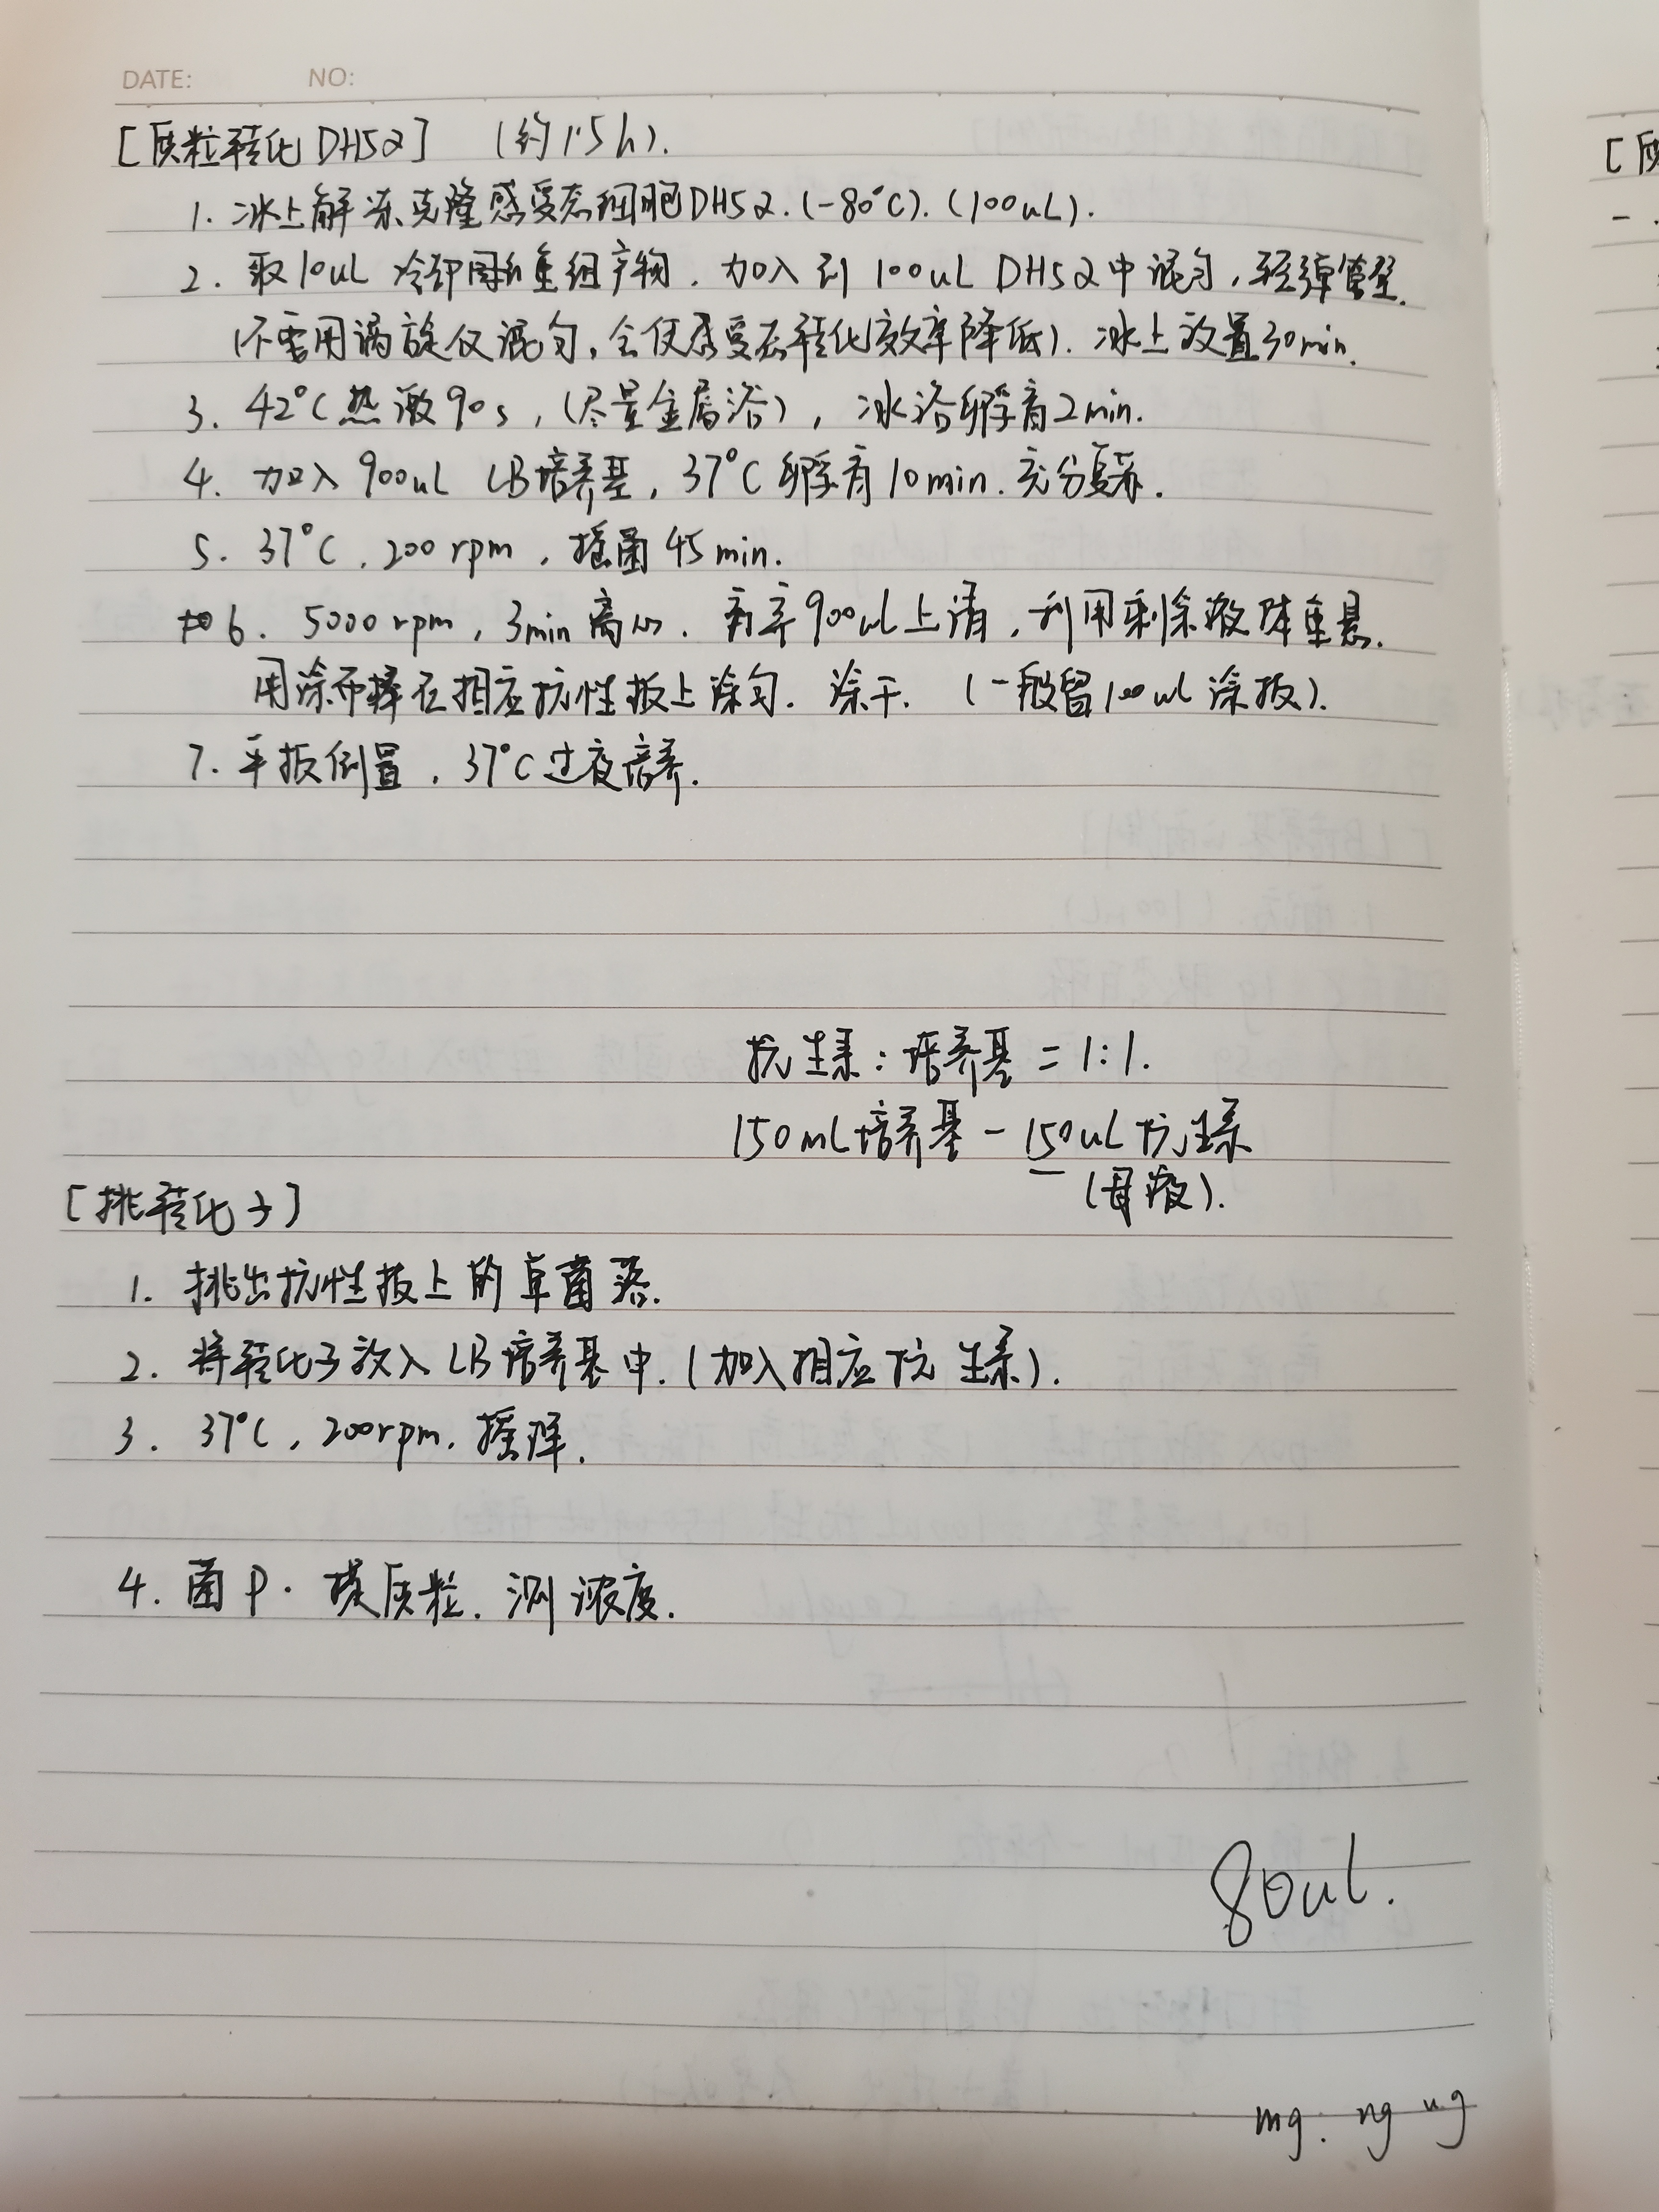 DATE: NO:
[质粒转化DH5α] (约1.5h).
1. 冰上解冻克隆感受态细胞DH5α.(-80°C).(100uL).
2. 取10uL 冷却 重组产物. 加入到100uL DH5α中混匀,轻弹管壁.
(不要用涡旋仪混匀,会使感受态转化效率降低). 冰上放置30min.
3. 42°C热激90s,(尽量金属浴), 冰浴孵育2min.
4. 加入900uL LB培养基, 37°C孵育10min.充分复苏.
5. 37°C, 200rpm, 摇菌45min.
6. 5000rpm, 3min离心. 弃900ul上清,利用剩余液体重悬.
用涂布棒在相应抗性板上涂匀. 涂干. (一般留100ul涂板).
7. 平板倒置, 37°C过夜培养.
抗生素:培养基=1:1.
150mL培养基-150uL抗生素
(母液).
[挑转化子]
1. 挑出抗性板上的单菌落.
2. 将转化子放入LB培养基中.(加入相应抗生素).
3. 37°C, 200rpm. 摇
4. 菌P. 提质粒. 测浓度.
80ul.
mg. ng ug
[质
一.